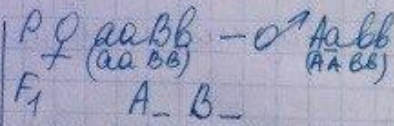 P ♀ aaBb – ♂ Aabb
(aa BB) (AA BB)
F₁ A_ B_